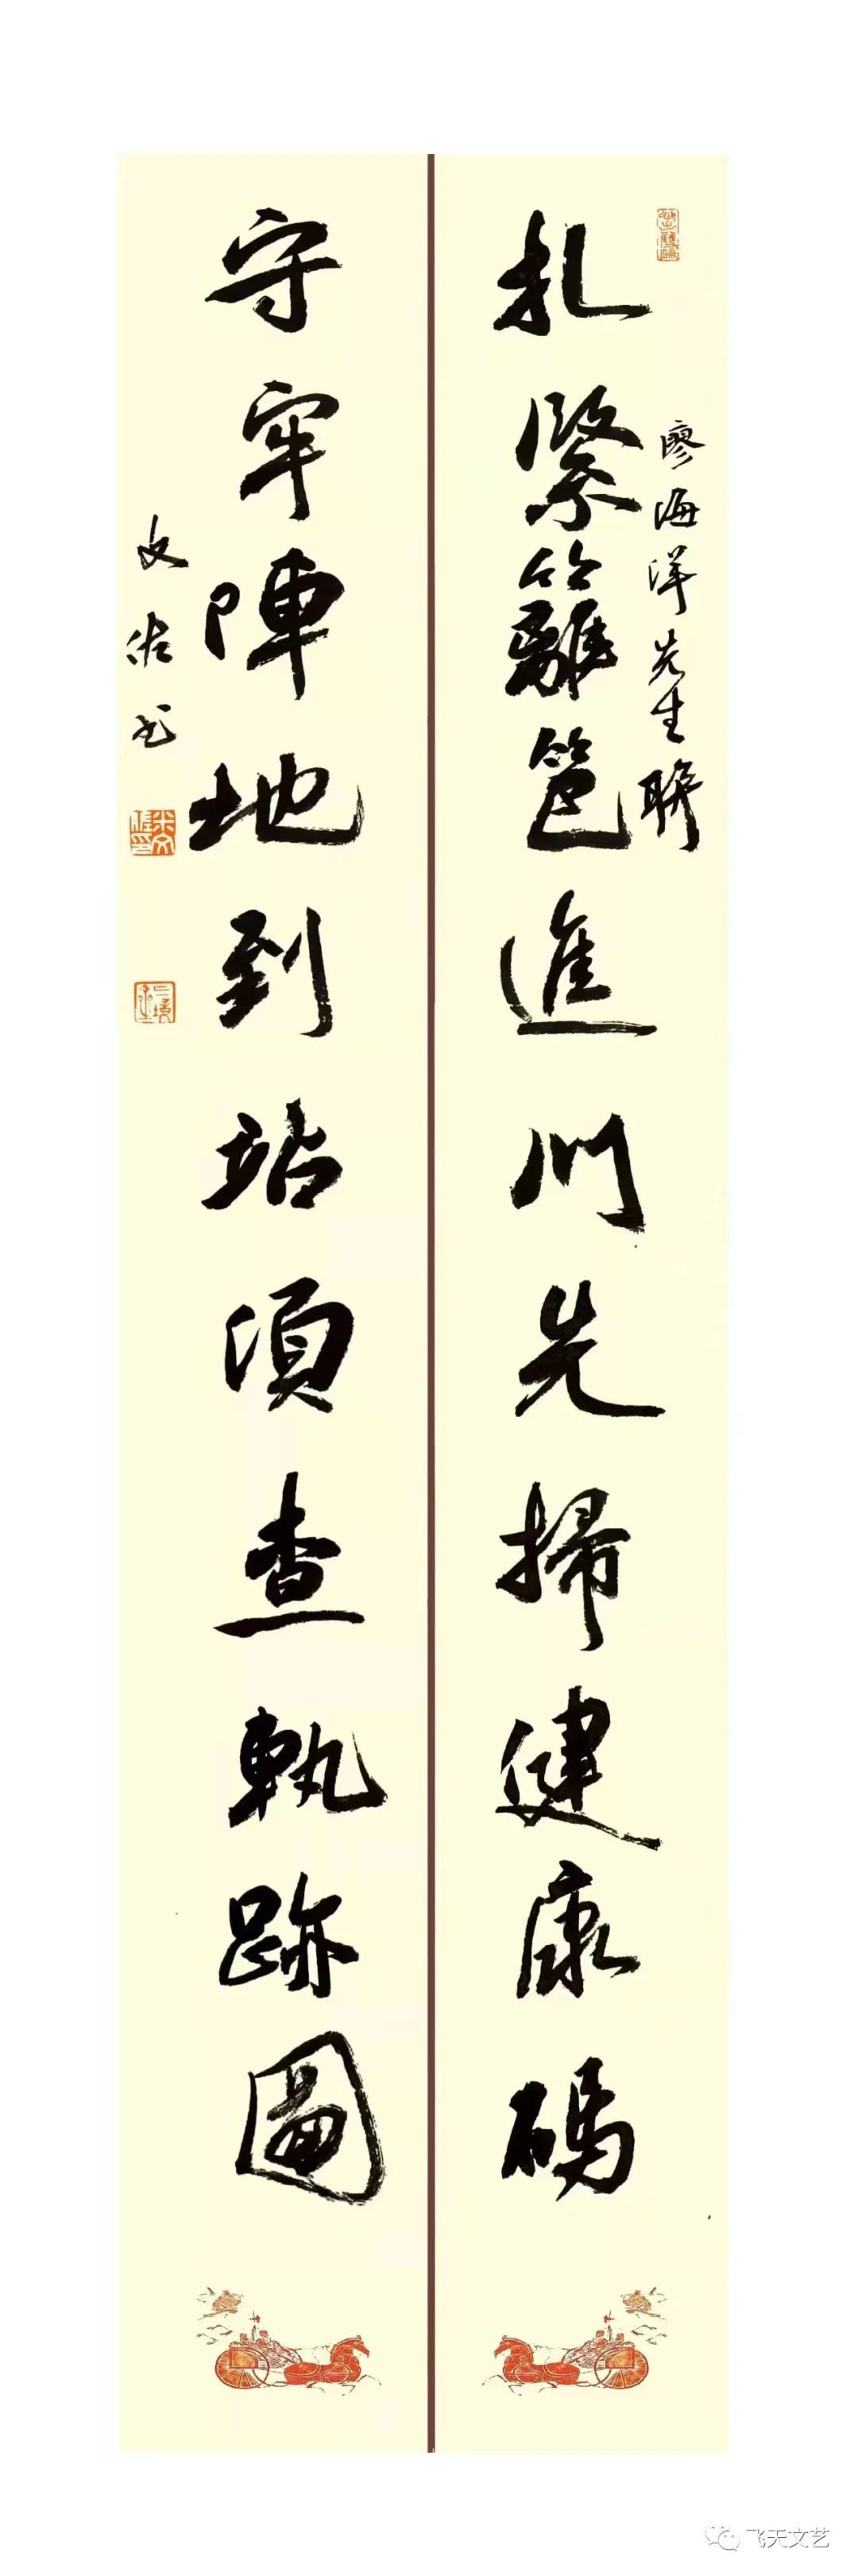 扎緊籬笆進門先掃健康碼
廖海洋先生聯
守牢陣地到站須查軌跡圖
文佐书
米文佐印
飞天文艺